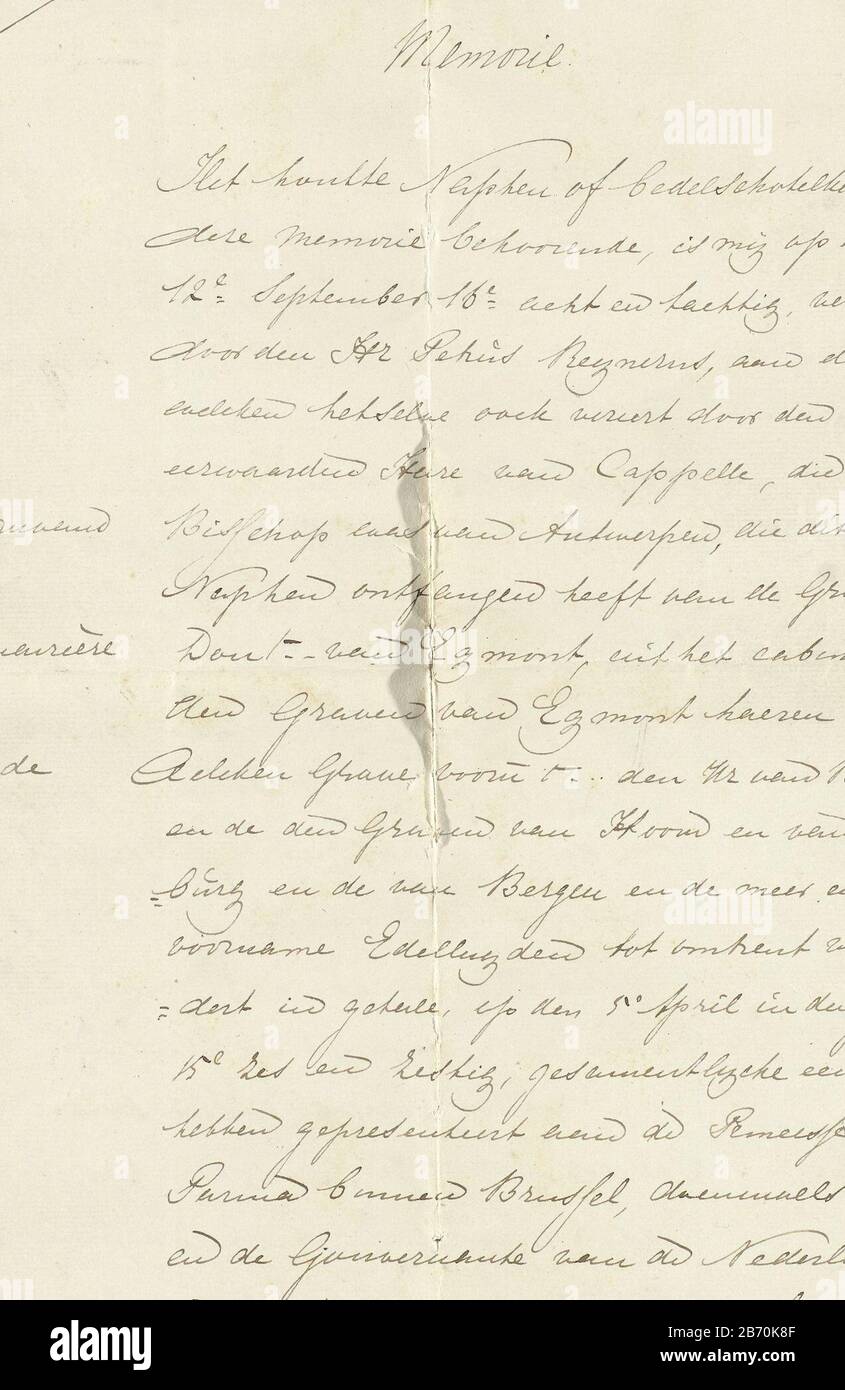 Memorie.
Het houtte Naphen of bedelschotelke
dese memorie behoorende, is mij op
12e September 16e acht en tachtig, ve
door den Hr Petrus Reynerus, aan d
welcken hetselve oock vereert door den
eerwaarden Heere van Cappelle, die
Bisschop was van Antwerpen, die dit
ruvend
Naphen ontfangen heeft van de Gra
Dont -- van Egmont, uit het cabin
den Graven van Egmont haeren
de
Welcken Grave voorn t- .. den Hr van B
en de den Graven van Hoorn en van
=burg en de van Bergen en de meer a
voorname Edelluyden tot omtrent v
=dert in getale, op den 5e April in de
15e zes en zestig, gesamentlycke een
hebben gepresenteert aan de Princesse
Parma binnen Brussel, doenmaels
en de Gouvernante van de Nederl
alamy
a
Image ID: 2B70K8F
www.alamy.com